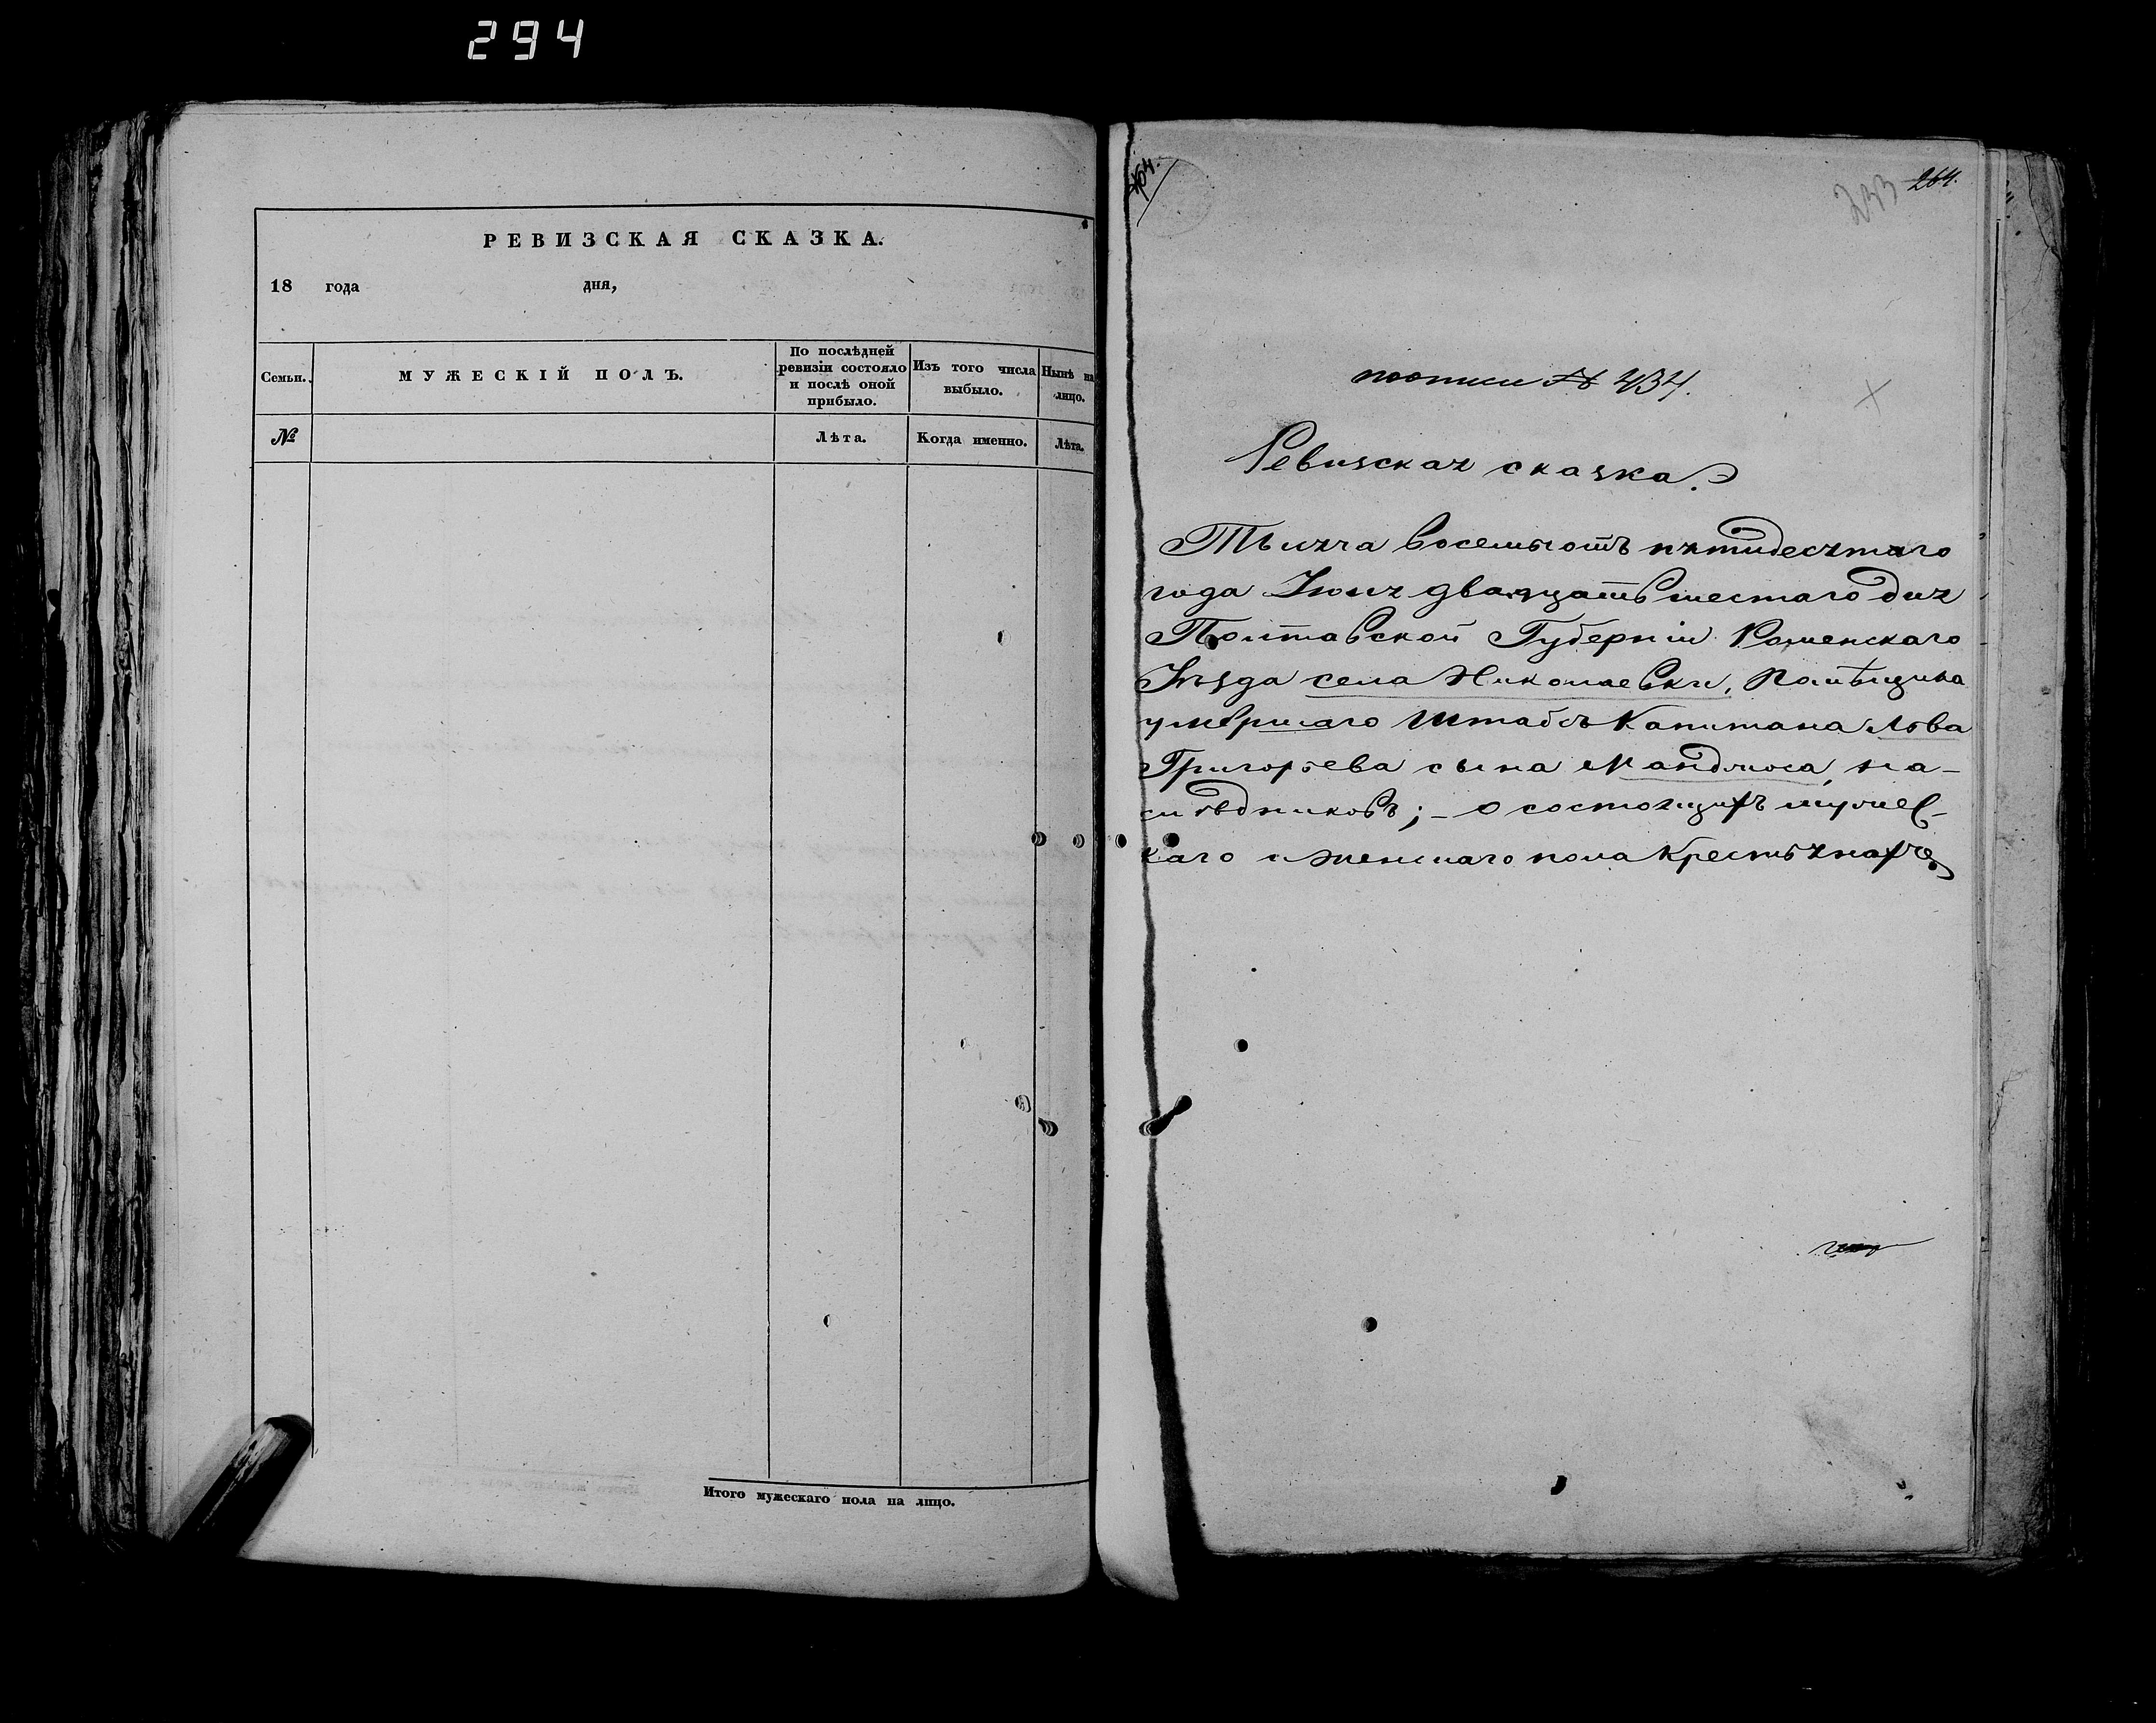 294
РЕВИЗСКАЯ СКАЗКА.
18 года дня,
Семьи.
МУЖЕСКІЙ ПОЛЪ.
По послѣдней ревизіи состояло и послѣ оной прибыло.
Изъ того числа выбыло.
Нынѣ на лицо.
№
Лѣта.
Когда именно.
Лѣта.
Итого мужескаго пола на лицо.
264.
по описи № 434.
Ревизская сказка.
Тысяча восемьсотъ пятидесятаго
года Іюня двадцать шестаго дня
Полтавской Губерніи Роменскаго
Уѣзда села Николаевки, Помѣщика
умершаго Штабсъ Капитана Льва
Григорьева сына Мандрыка, на-
слѣдниковъ; - о состоящихъ мужес-
каго и женскаго пола крестьянахъ